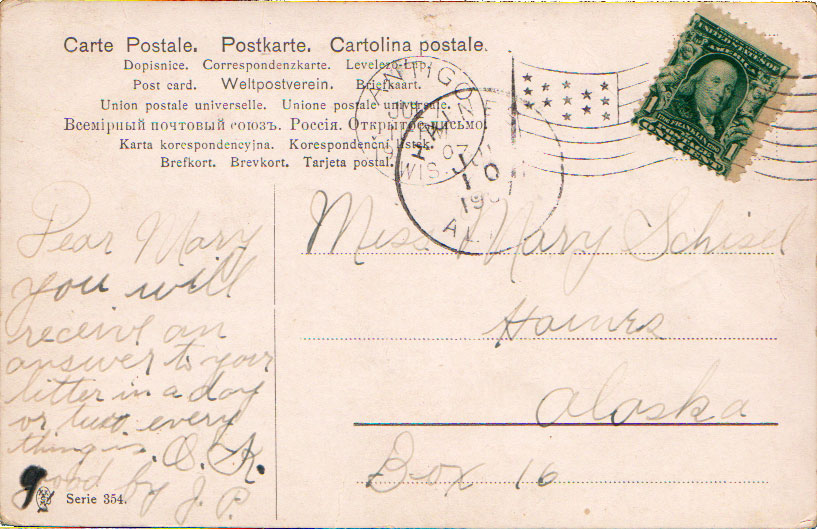 Carte Postale. Postkarte. Cartolina postale.
Dopisnice. Correspondenzkarte. Levelező-Lap.
Post card. Weltpostverein. Briefkaart.
Union postale universelle. Unione postale universale.
Всемірный почтовый союзъ. Россія. Открытое письмо.
Karta korespondencyjna. Korespondenční lístek.
Brefkort. Brevkort. Tarjeta postal.
07
WIS.
HAINES
JUL
10
190
AL
UNITED STATES OF
AMERICA
1
FRANKLIN
1
ONE CENT
Miss Mary Schisel
Haines
Alaska
Box 16
Dear Mary
you will
receive an
answer to your
litter in a day
or two every
thing is O.K.
good by J. P.
Serie 354.